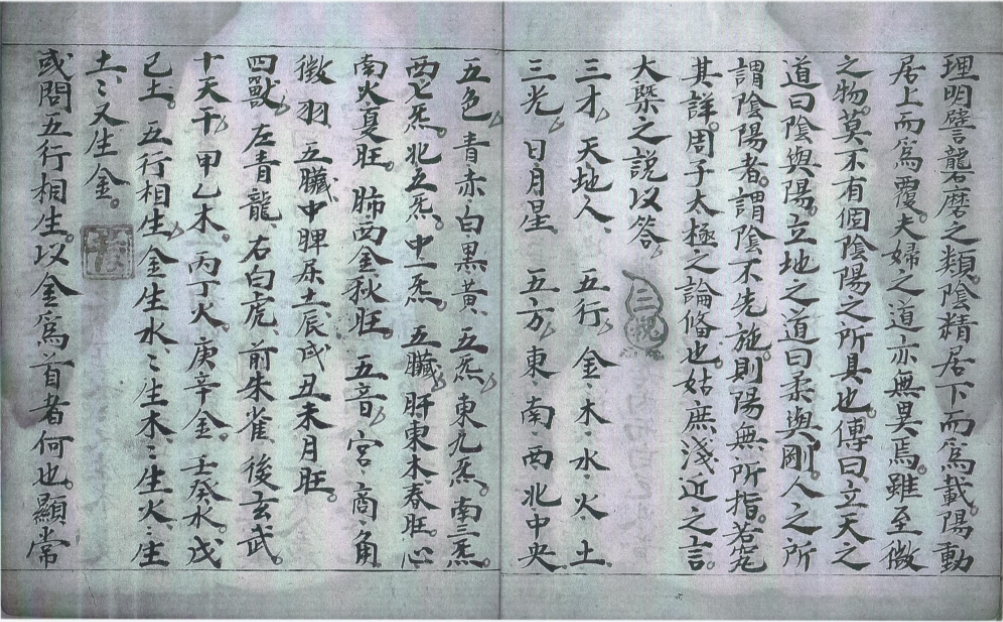 理明譬礱磨之類。陰精居下而爲載。陽動
居上而爲覆。夫婦之道亦無異焉。雖至微
之物。莫不有個陰陽之所具也。傳曰、立天之
道曰陰與陽。立地之道曰柔與剛。人之所
謂陰陽者。謂陰不先施。則陽無所指。若究
其詳。周子太極之論備也。姑庶淺近之言。
大槩之說以答。
三才 天地人、 五行 金·木·水·火·土
三光、 日月星 五方、東·南·西·北·中央
五色、青·赤·白·黒·黃、 五炁、東九炁。南三炁。
西七炁。北五炁。中一炁。 五臟、肝東木春旺。心
南火夏旺。 肺西金秋旺。 五音、宮·商·角
徵羽、 五臟中脾屎土、辰戌丑未月旺。
四獸、 左青龍、右白虎、前朱雀、後玄武。
十天干、甲乙木。丙丁火。庚辛金。壬癸水。戊
己土。 五行相生、金生水、〻生木、〻生火、〻生
土、〻又生金。
或問五行相生。以金爲首者何也。顯常